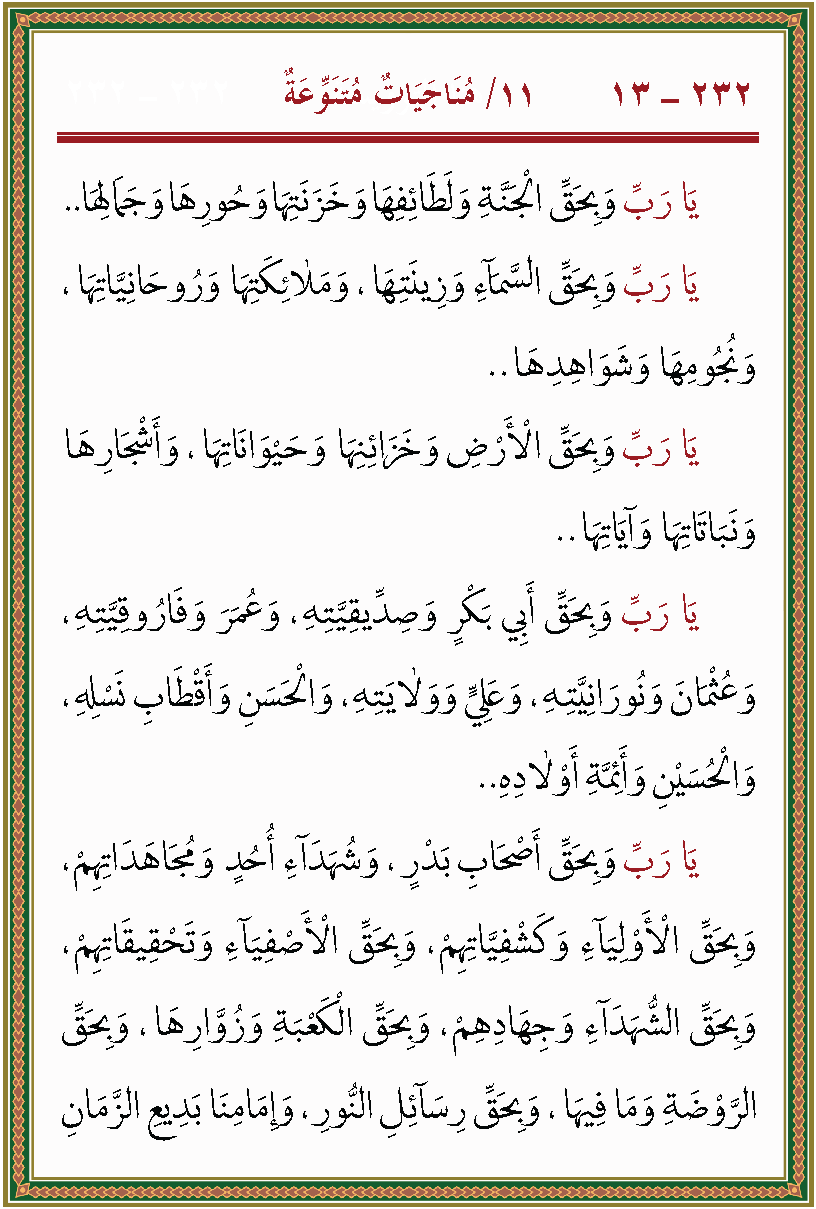 ٢٣٢ ـ ١٣ ١١/ مُنَاجَيَاتٌ مُتَنَوِّعَةٌ ٢٣٢ - ٢٣٢
يَا رَبِّ وَبِحَقِّ الْجَنَّةِ وَلَطَائِفِهَا وَخَزَنَتِهَا وَحُورِهَا وَجَمَالِهَا..
يَا رَبِّ وَبِحَقِّ السَّمَآءِ وَزِينَتِهَا ، وَمَلٰائِكَتِهَا وَرُوحَانِيَّاتِهَا ،
وَنُجُومِهَا وَشَوَاهِدِهَا ..
يَا رَبِّ وَبِحَقِّ الْأَرْضِ وَخَزَائِنِهَا وَحَيْوَانَاتِهَا ، وَأَشْجَارِهَا
وَنَبَاتَاتِهَا وَآيَاتِهَا ..
يَا رَبِّ وَبِحَقِّ أَبِي بَكْرٍ وَصِدِّيقِيَّتِهِ ، وَعُمَرَ وَفَارُوقِيَّتِهِ ،
وَعُثْمَانَ وَنُورَانِيَّتِهِ ، وَعَلِيٍّ وَوَلٰايَتِهِ ، وَالْحَسَنِ وَأَقْطَابِ نَسْلِهِ ،
وَالْحُسَيْنِ وَأَئِمَّةِ أَوْلٰادِهِ..
يَا رَبِّ وَبِحَقِّ أَصْحَابِ بَدْرٍ ، وَشُهَدَآءِ أُحُدٍ وَمُجَاهَدَاتِهِمْ ،
وَبِحَقِّ الْأَوْلِيَآءِ وَكَشْفِيَّاتِهِمْ ، وَبِحَقِّ الْأَصْفِيَآءِ وَتَحْقِيقَاتِهِمْ ،
وَبِحَقِّ الشُّهَدَآءِ وَجِهَادِهِمْ ، وَبِحَقِّ الْكَعْبَةِ وَزُوَّارِهَا ، وَبِحَقِّ
الرَّوْضَةِ وَمَا فِيهَا ، وَبِحَقِّ رِسَآئِلِ النُّورِ ، وَإِمَامِنَا بَدِيعِ الزَّمَانِ